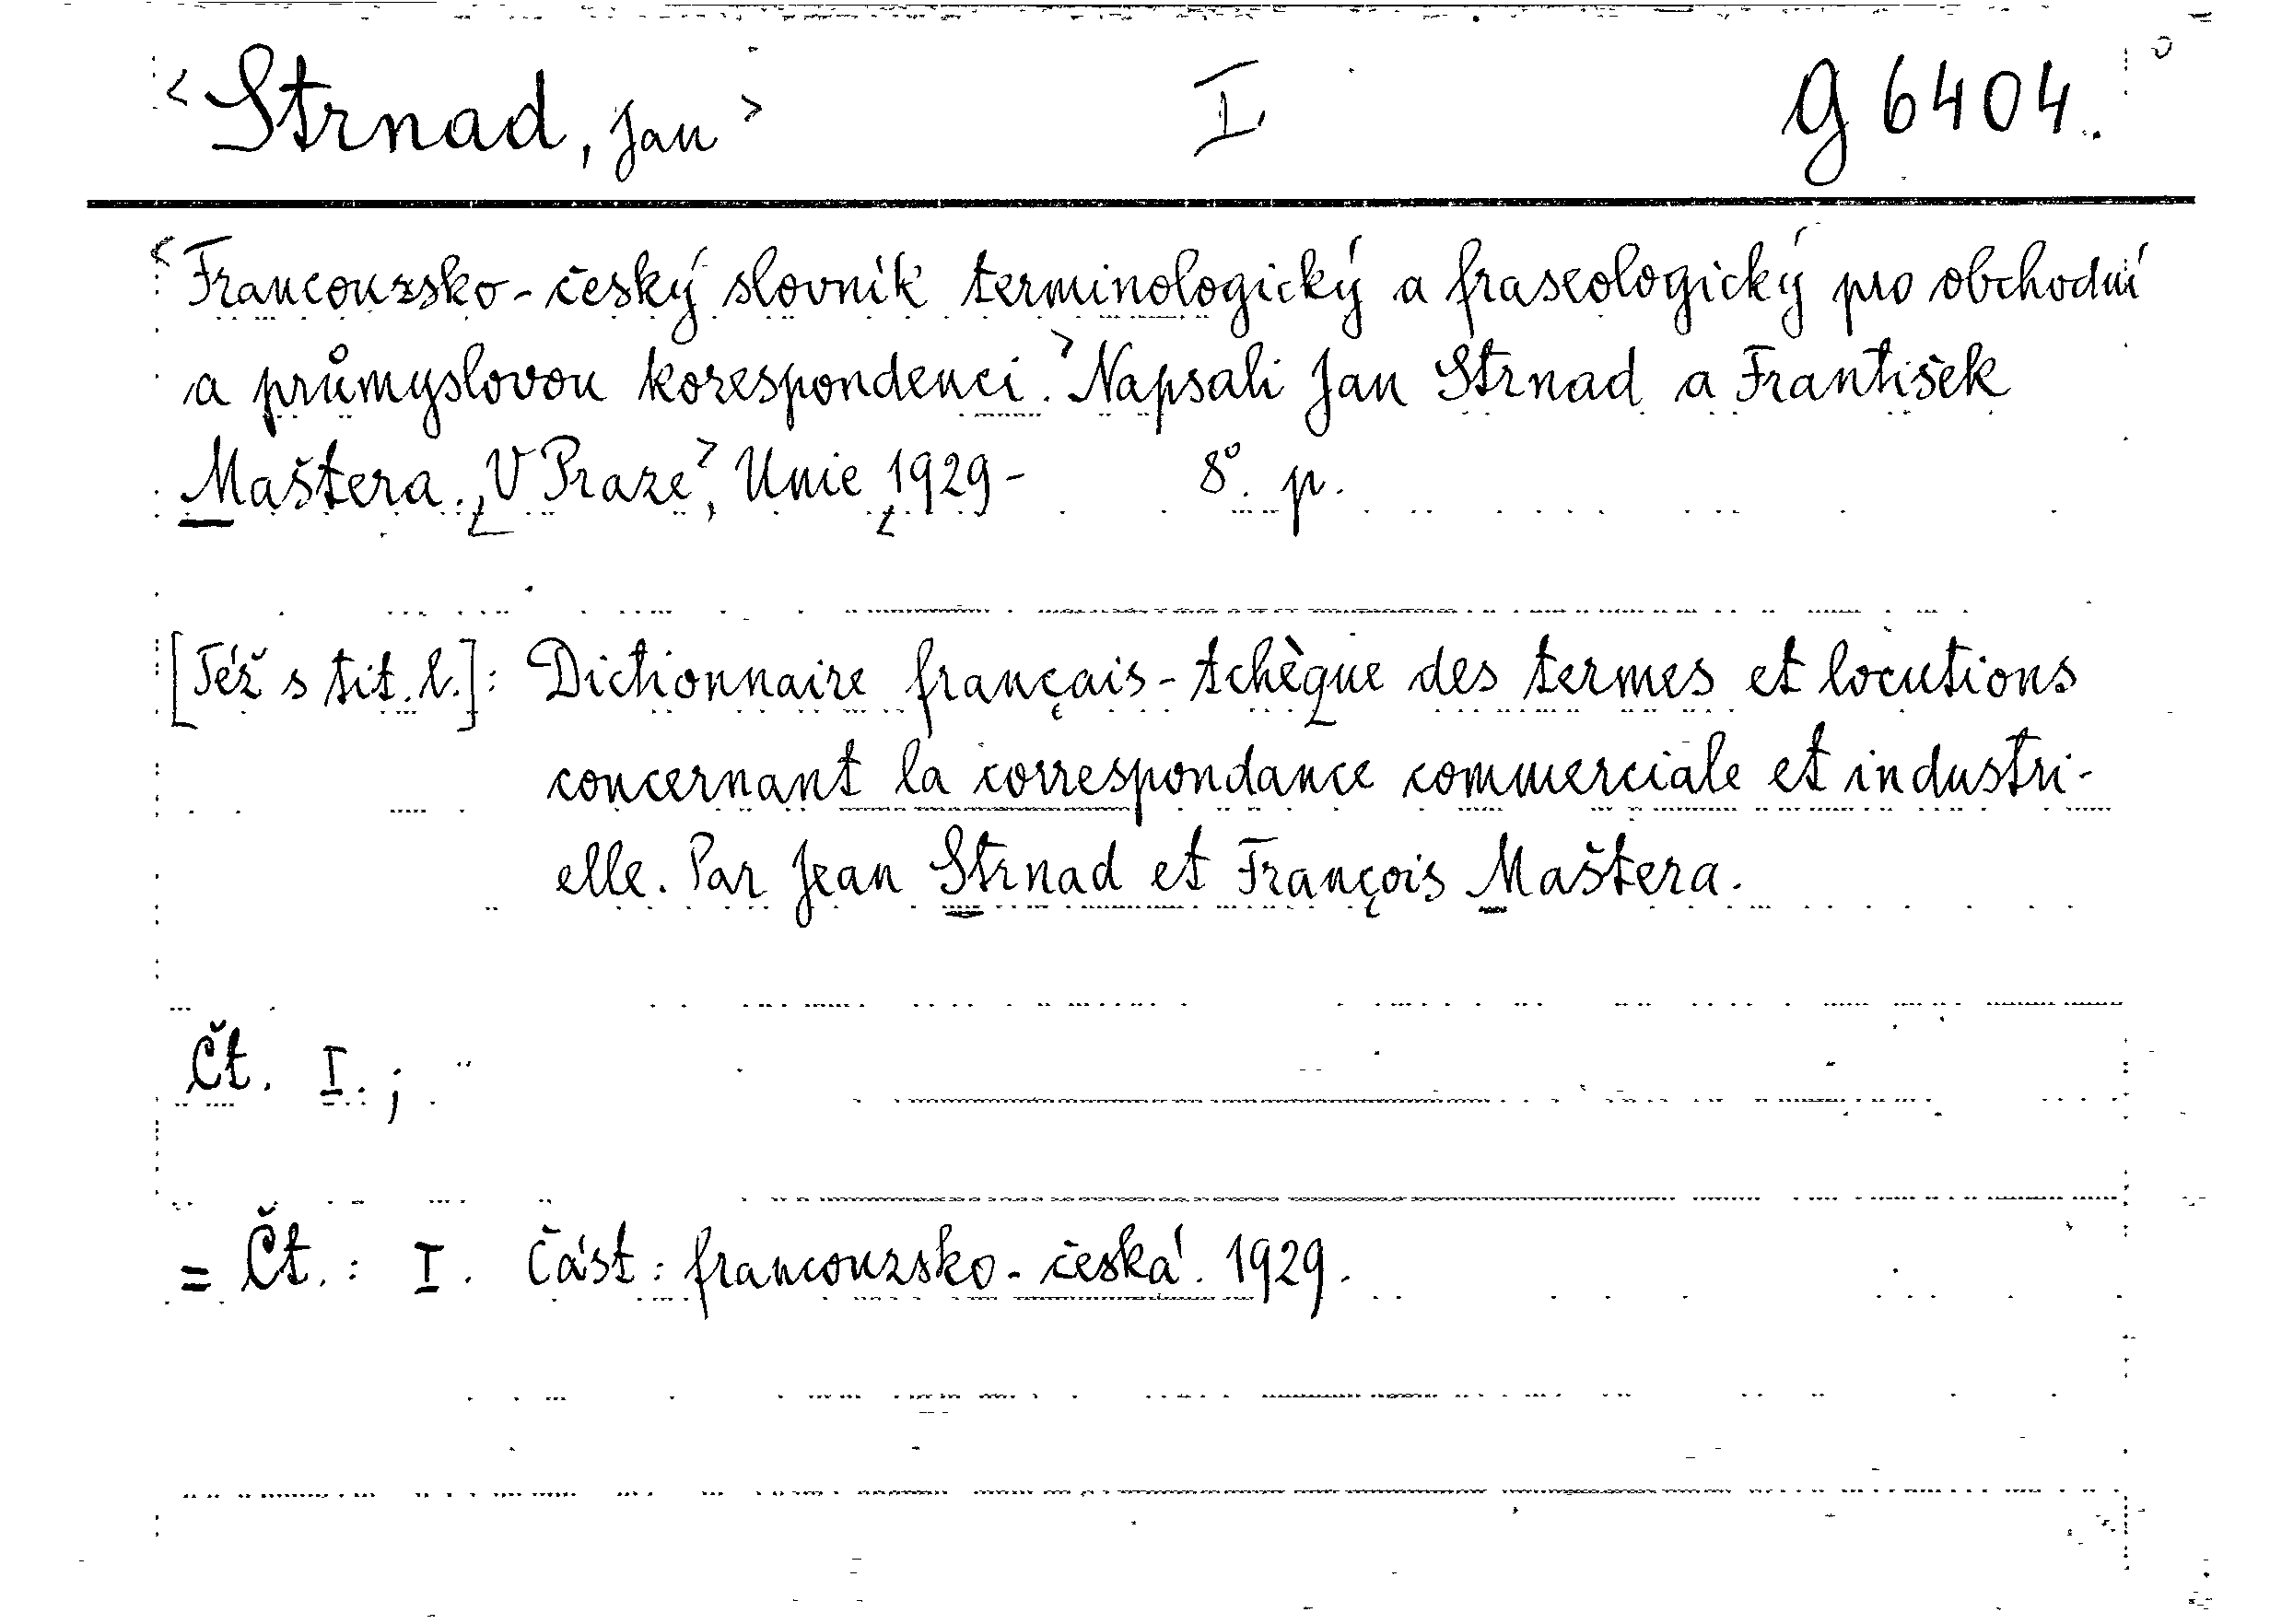 <Strnad, Jan> I g 6404.
<Francouzsko-český slovník terminologický a fraseologický pro obchodní
a průmyslovou korespondenci.> Napsali Jan Strnad a František
Maštera. V Praze, Unie 1929- 8°. p.
[Též s tit. l.]: Dictionnaire français-tchèque des termes et locutions
concernant la correspondance commerciale et industri-
elle. Par Jean Strnad et François Maštera.
Čt. I.;
= Čt.: I. Část: francouzsko-česká. 1929.